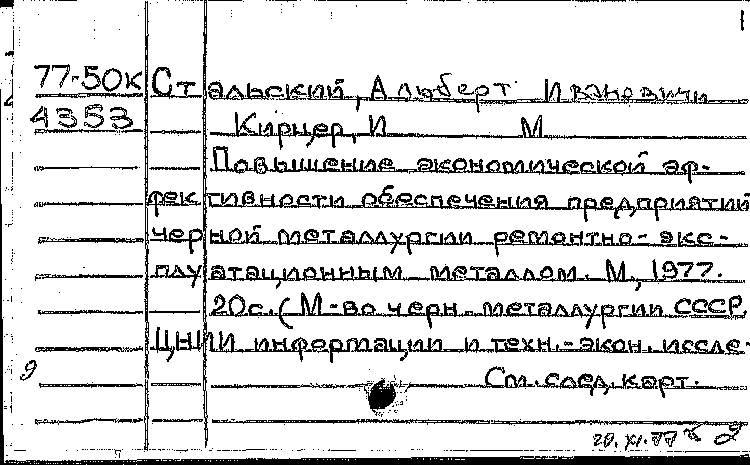 1
77-50К Стальский, Альберт Иванович и
4353 Кирцер, И М
Повышение экономической эф-
фективности обеспечения предприятий
черной металлургии ремонтно-экс-
плуатационным металлом. М., 1977.
20с. (М-во черн. металлургии СССР,
ЦНИИ информации и техн.-экон. иссле-
9
См. след. карт.
20.XI.77